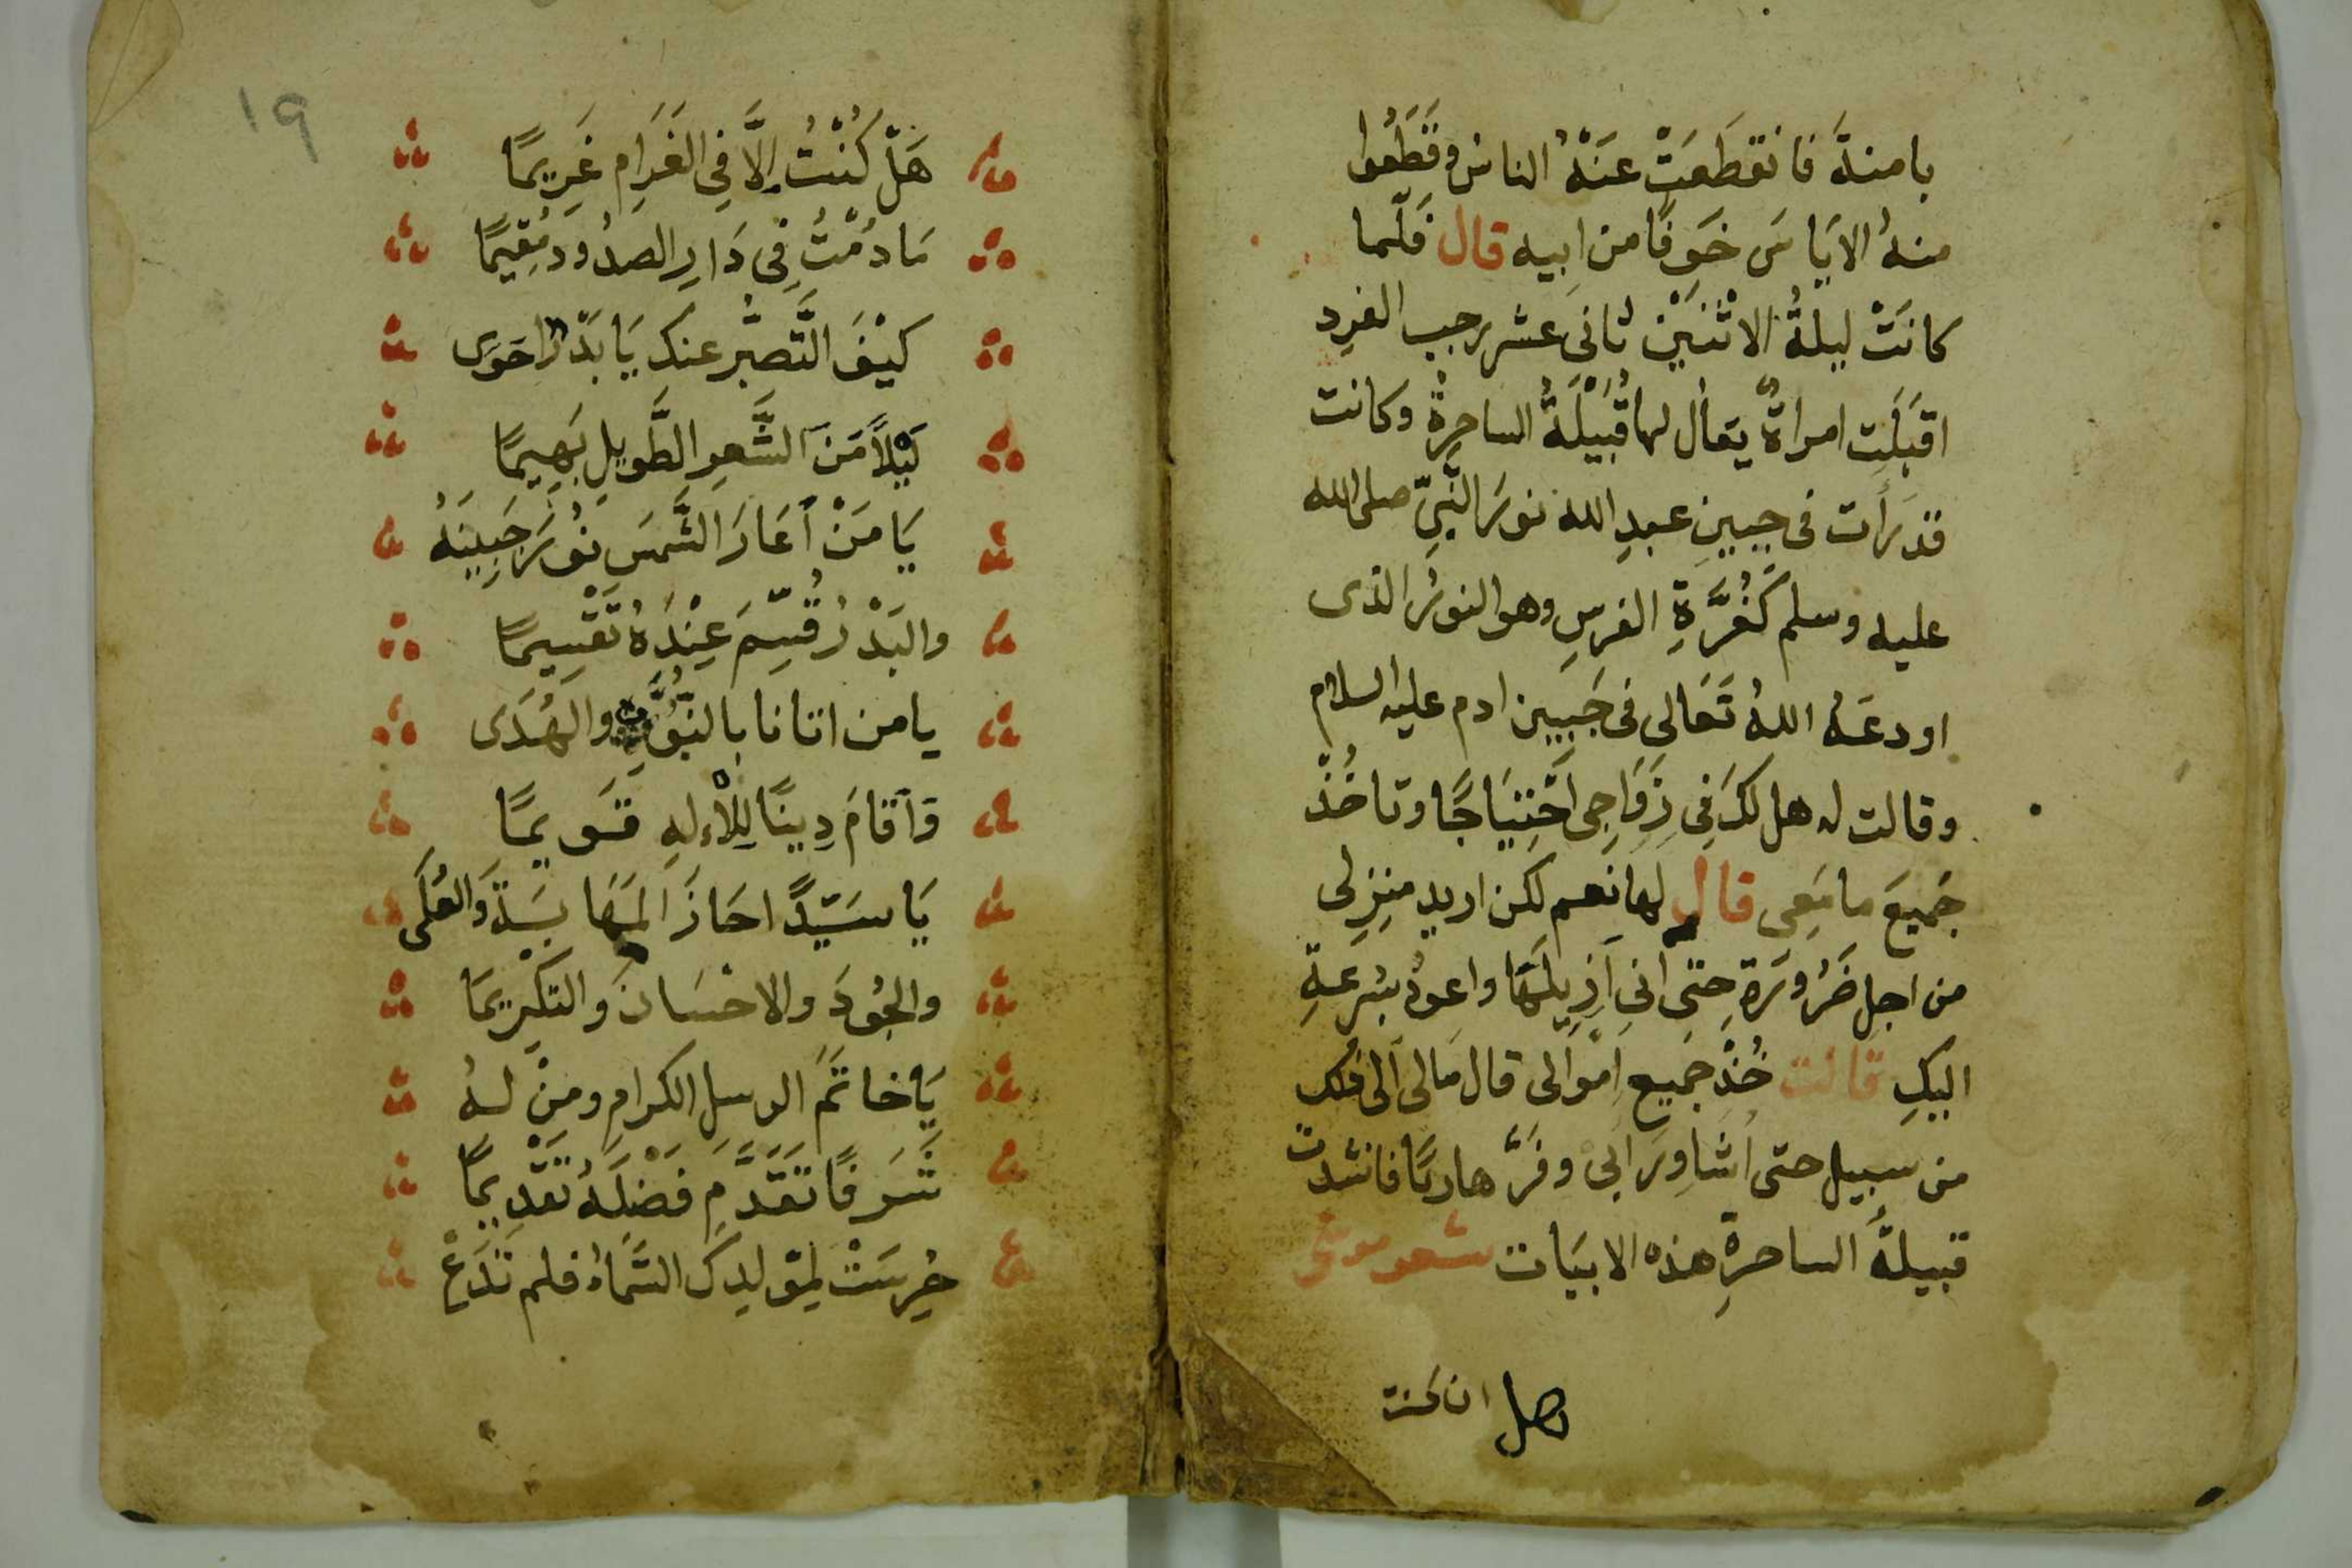 بامنةَ فانقطَعَتْ عَنْهُ الناس وقَطَعُوا
منهُ الاَيَاسَ خَوفًا من ابيه قال فَلَّما
كانَتْ ليلةُ الاثْنَيْن ثانى عشر رجب الفرِد
اقبَلَت امراةٌ يقال لها قُبَيْلَةُ الساحِرةُ وكانت
قد رَأت فى جبينِ عبدِ الله نورَ النَّبِىّ صلى الله
عليه وسلم كَغُرَّةِ الفرسِ وهو النورُ الذى
اودعَهُ اللهُ تَعَالى فى جَبِين ادم عليه السلام
وقالت له هل لكَ فِى زَوَاجِى احْتِيَاجًا وتاخُذْ
جَميعَ ما مَعِى قال لها نعم لكن اريد منزلى
من اجل ضَرُورَةِ حتى انى اَزِيلَهَا واعودُ بسُرعةِ
اليكِ قالت خُذْ جَميع اَمْوَالى قال مَالى الى ذلك
من سبيل حتى اُشَاوِرَ اَبِى وفَرَّ هاربًا فانشدت
قبيلةُ الساحرةِ هذه الابيَات شعر
هل ان كنت
١٩
هَلْ كُنْتُ اِلَّا فِى الغَرَامِ غَرِيمًا
مَا دُمْتُ فِى دَارِ الصدُود مُقِيمًا
كيْفَ التَّصبُّر عنك يَا بَدْرًا حَوَى
لَيْلًا مَنَ الشَّعرِ الطَّويلِ بَهِيمًا
يَا مَنْ اَعَارَ الشَّمسَ نُورَ جَبِينَهُ
والبَدْرُ قُسِّمَ عِنْدَهُ تَقْسِيمًا
يا من اتانا بالنبُوَّةِ والهُدَى
وَاَقَامَ دِينًا لِلْاِلهِ قَويمًا
يَا سَيّدًا حَازَ المَهَابَةَ وَالعُلَى
والجُودَ والاحْسَانَ والتكريمَا
يَا خاتَمَ الرسل الكرامِ ومنْ لهُ
شَرَفًا تَقَدَّمَ فَضْلَهُ تَقْدِيمًا
حُرِسَتْ لِمَولِدِكَ السَّمَاءُ فلم تَدَعْ